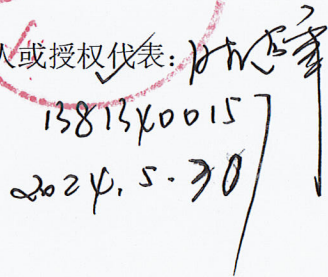 人或授权代表:
13813400157
2024.5.30